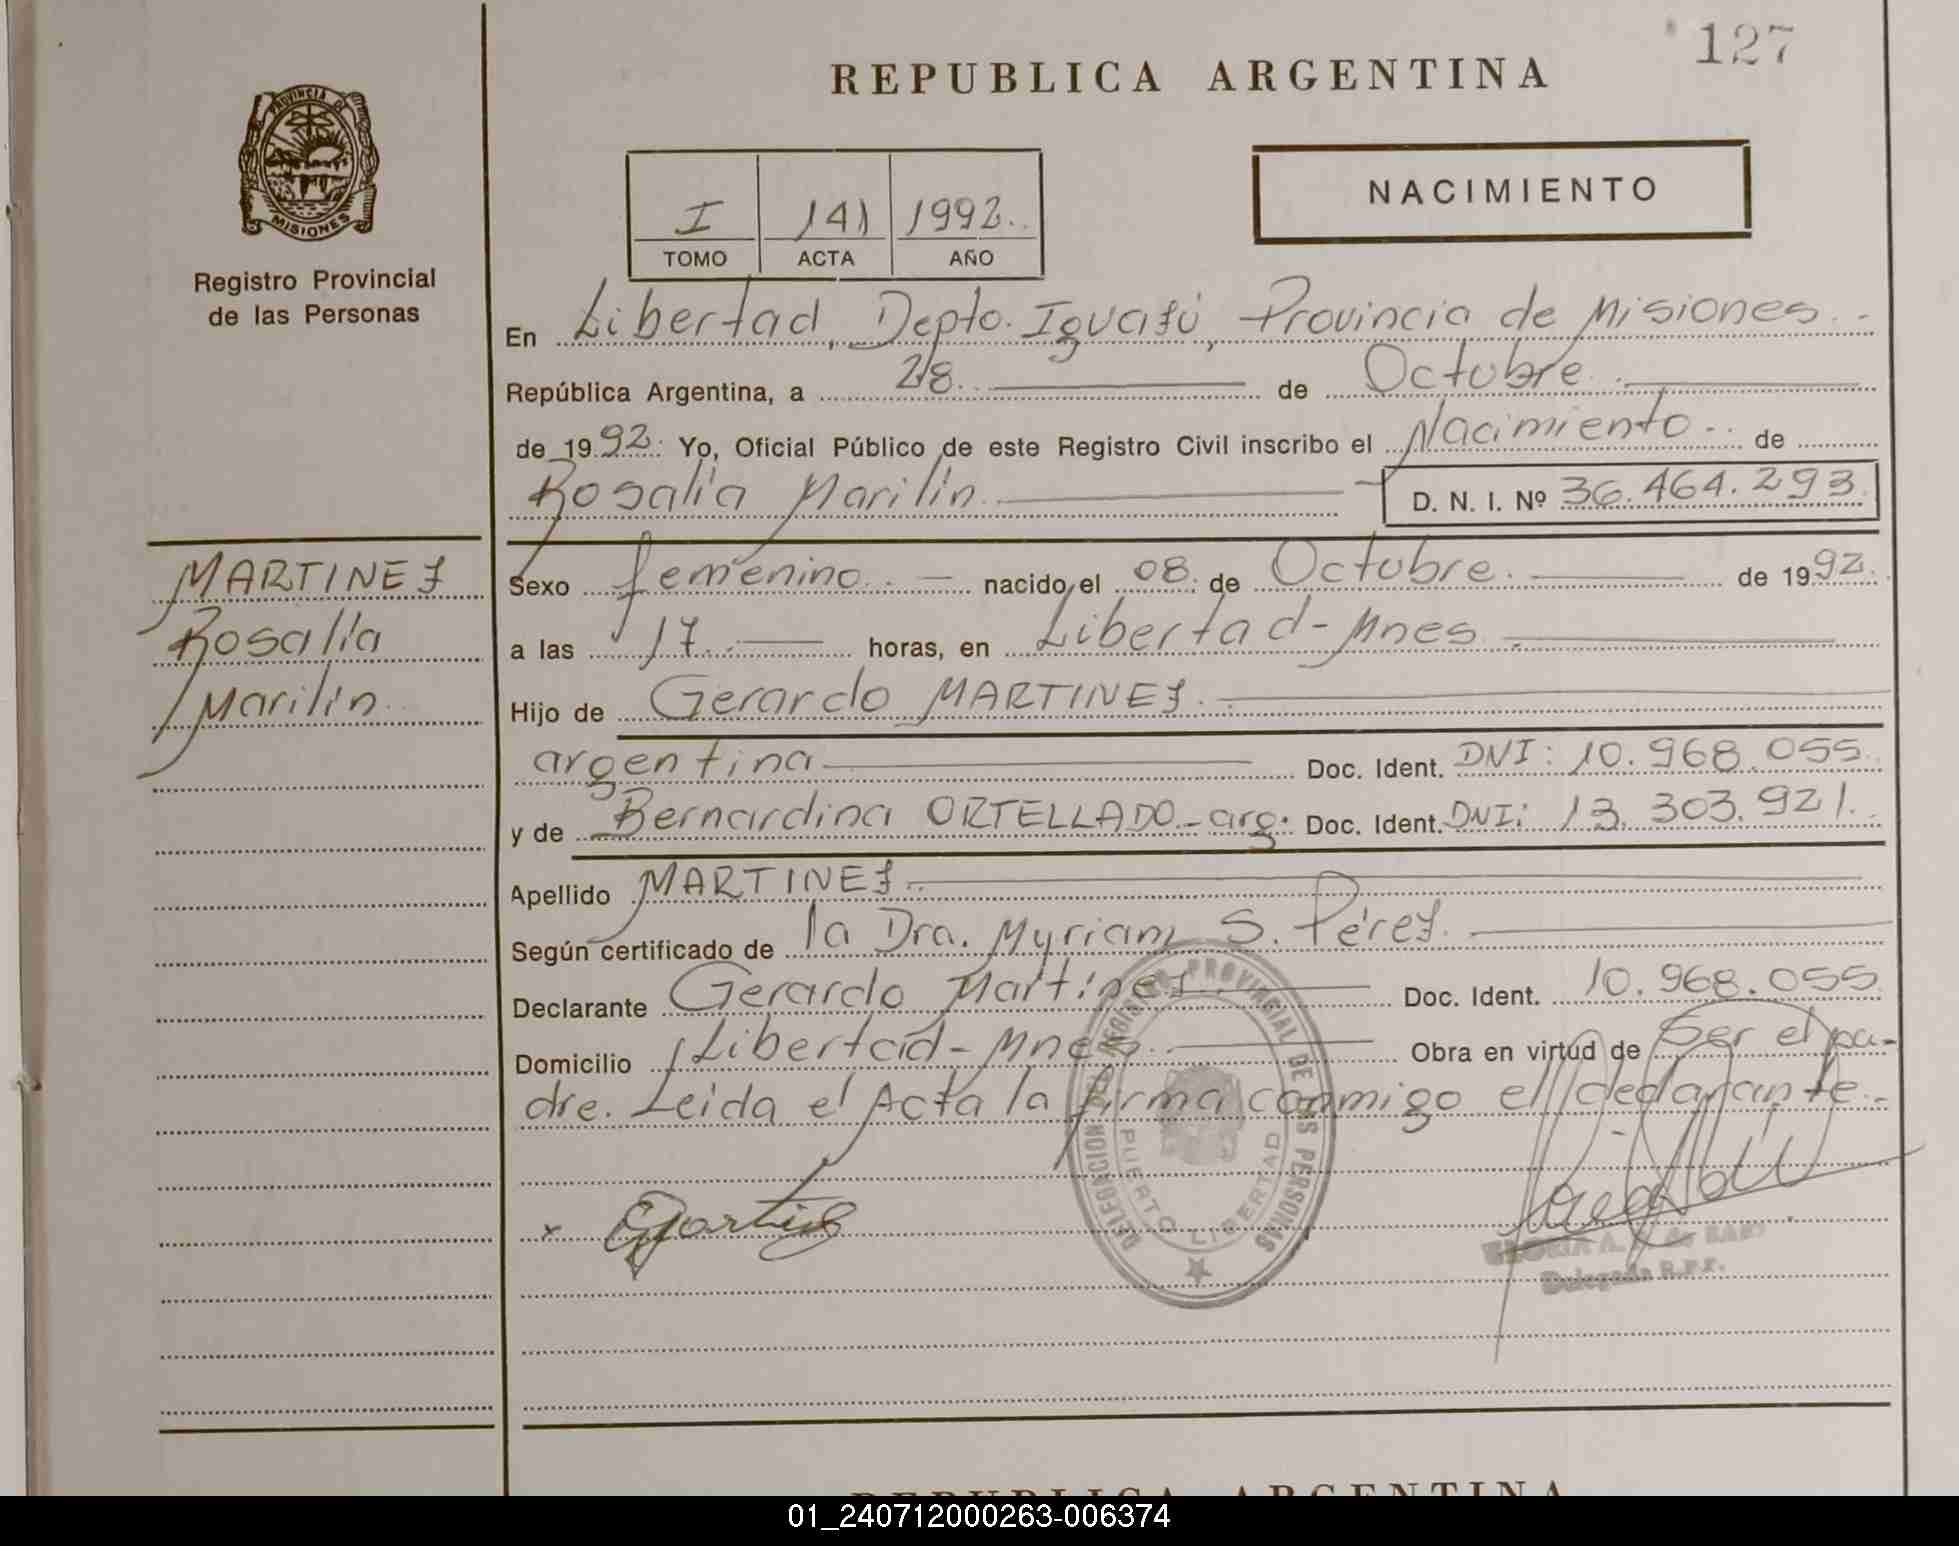 127
REPUBLICA ARGENTINA
PROVINCIA DE
MISIONES
Registro Provincial
de las Personas
I 141 1992.
TOMO ACTA AÑO
NACIMIENTO
En Libertad, Depto. Iguazú, Provincia de Misiones.-
República Argentina, a 28. de Octubre.
de 1992. Yo, Oficial Público de este Registro Civil inscribo el Nacimiento.. de
Rosalía Marilín. D. N. I. Nº 36.464.293.
MARTINEZ
Rosalía
Marilín.
Sexo femenino.. nacido el 08. de Octubre. de 1992.
a las 17. horas, en Libertad-Mnes.
Hijo de Gerardo MARTINEZ.
argentina Doc. Ident. DNI: 10.968.055.
y de Bernardina ORTELLADO.-arg. Doc. Ident. DNI: 13.303.921.
Apellido MARTINEZ..
Según certificado de la Dra. Myriam S. Pérez.
Declarante Gerardo Martínez. Doc. Ident. 10.968.055
Domicilio Libertad-Mnes. Obra en virtud de Ser el pa-
dre. Leida el Acta la firma conmigo el declarante.-
DELEGACION DEL REGISTRO PROVINCIAL DE LAS PERSONAS
PUERTO LIBERTAD
x
Delegada R.P.P.
REPUBLICA ARGENTINA
01_240712000263-006374